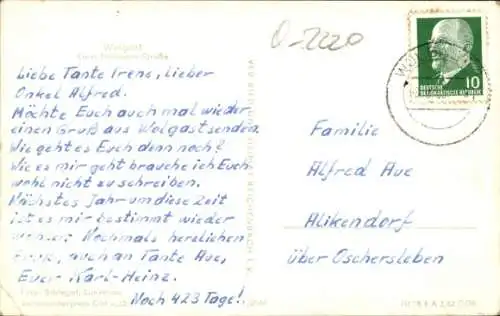 O-2220
Wolgast
Liebe Tante Irene, lieber
Onkel Alfred.
Möchte Euch auch mal wieder
einen Gruß aus Wolgast senden.
Wie geht es Euch denn noch?
Wie es mir geht brauche ich Euch
wohl nicht zu schreiben.
Nächstes Jahr um diese Zeit
ist es mir bestimmt wieder
Nochmals herzlichen
auch an Tante Aue,
Euer Karl-Heinz.
Noch 423 Tage!
10
DEUTSCHE
DEMOKRATISCHE REPUBLIK
Familie
Alfred Aue
Alikendorf
über Oschersleben